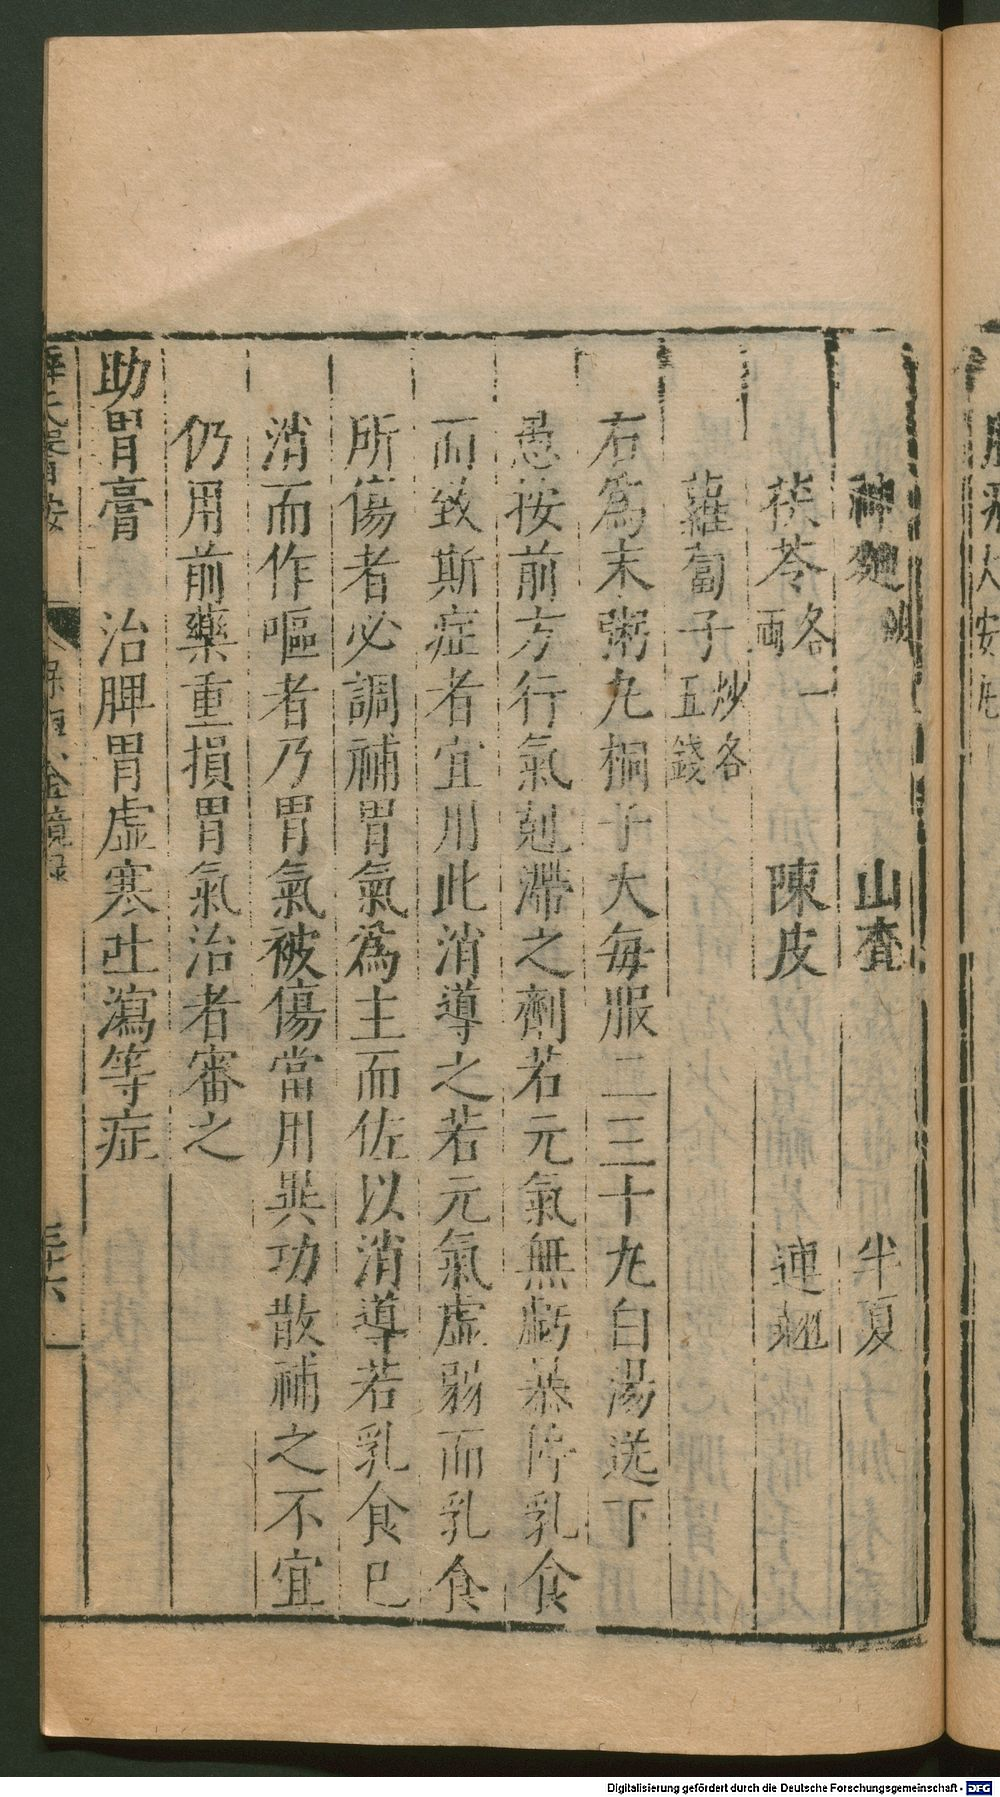 神麯炒 山査 半夏
茯苓各一兩 陳皮 連翹
蘿蔔子炒各五錢
右爲末粥丸桐子大每服二三十丸白湯送下
愚按前方行氣尅滯之劑若元氣無虧暴停乳食
而致斯症者宜用此消導之若元氣虛弱而乳食
所傷者必調補胃氣爲主而佐以消導若乳食已
消而作嘔者乃胃氣被傷當用異功散補之不宜
仍用前藥重損胃氣治者審之
助胃膏 治脾胃虛寒吐瀉等症
Digitalisierung gefördert durch die Deutsche Forschungsgemeinschaft - DFG